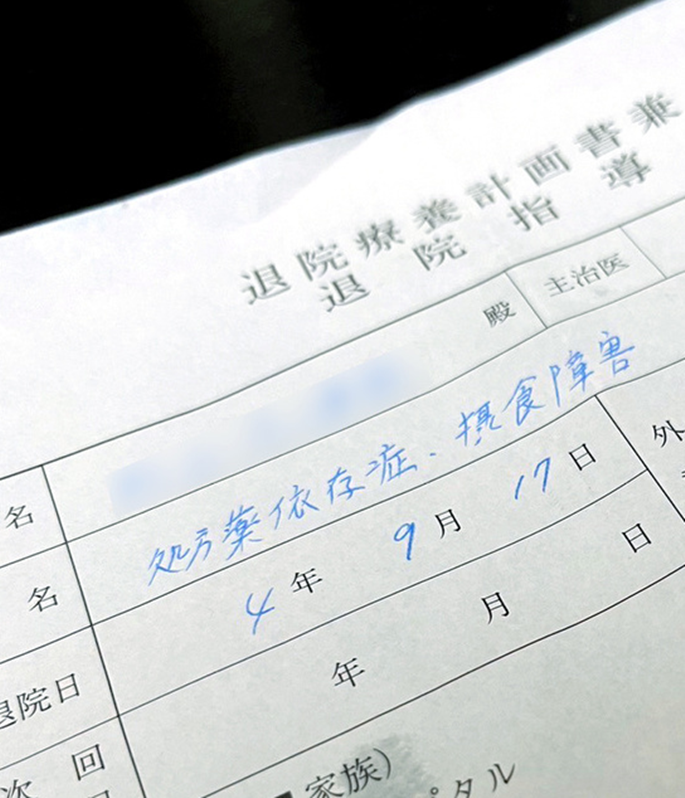 退院療養計画書兼
退院指導
殿 主治医
名
名 処方薬依存症、摂食障害
外
退院日 4年 9月 17日
次回 年 月 日
家族)
タル